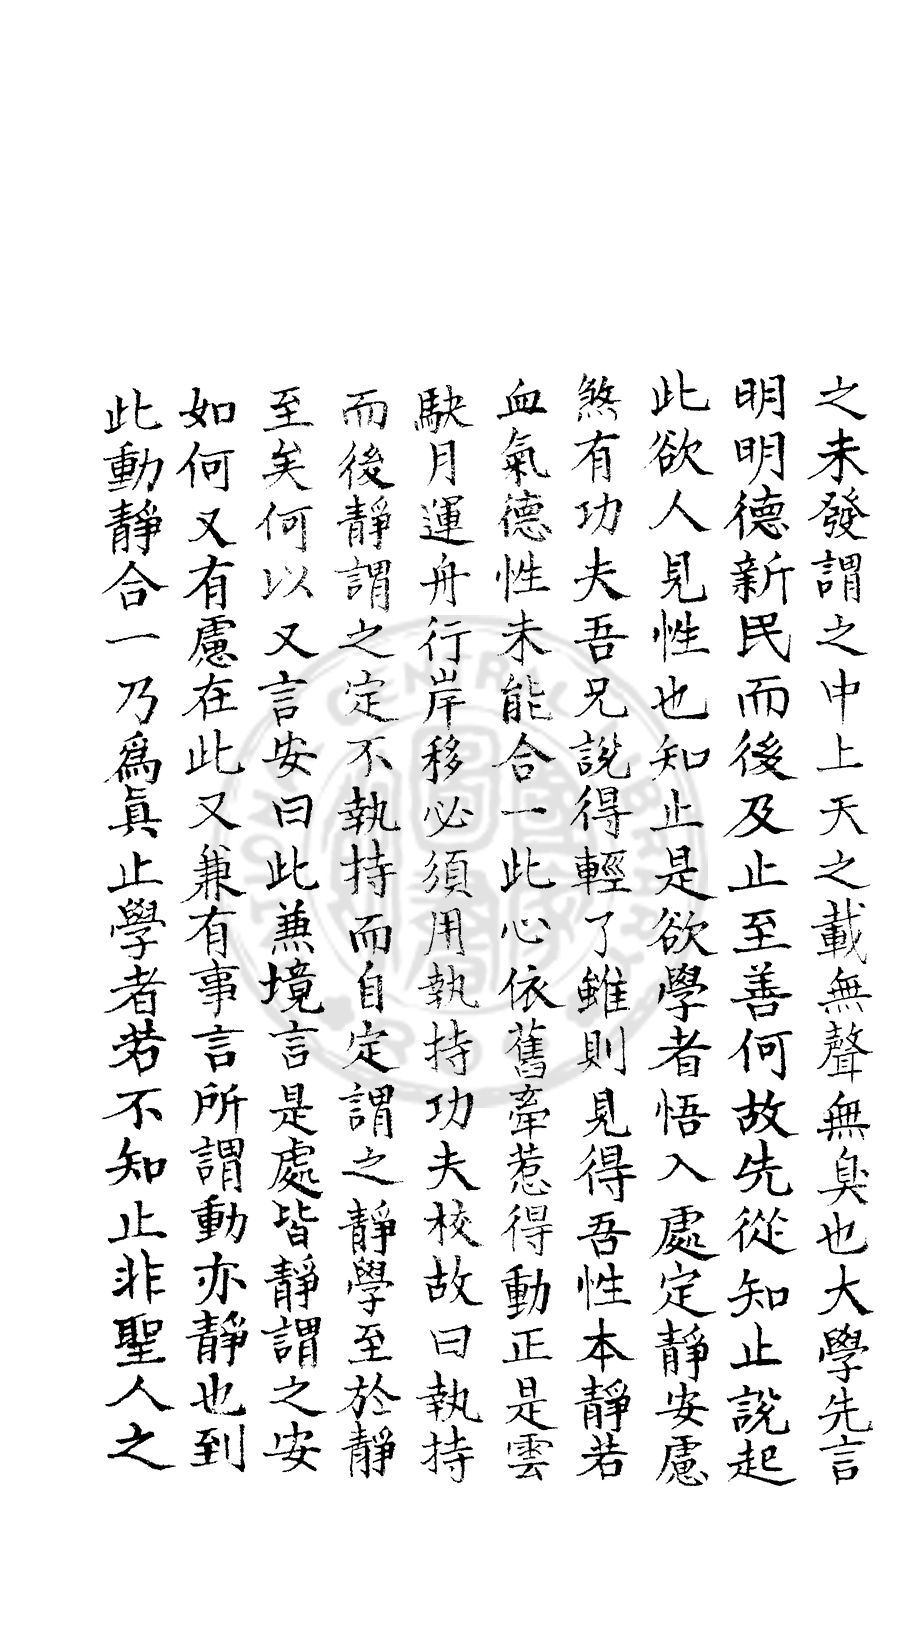 之未發謂之中上天之載無聲無臭也大學先言
明明德新民而後及止至善何故先從知止說起
此欲人見性也知止是欲學者悟入處定靜安慮
煞有功夫吾兄說得輕了雖則見得吾性本靜若
血氣德性未能合一此心依舊牽惹得動正是雲
駃月運舟行岸移必須用執持功夫校故曰執持
而後靜謂之定不執持而自定謂之靜學至於靜
至矣何以又言安曰此兼境言是處皆靜謂之安
如何又有慮在此又兼有事言所謂動亦靜也到
此動靜合一乃為真止學者若不知止非聖人之